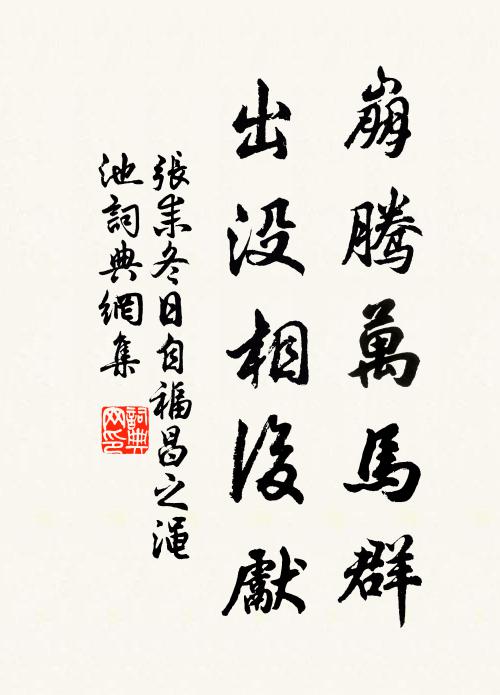 崩騰萬馬群
出没相後獻
張耒冬日自福昌之澠
池詞典網集
詞典
网印